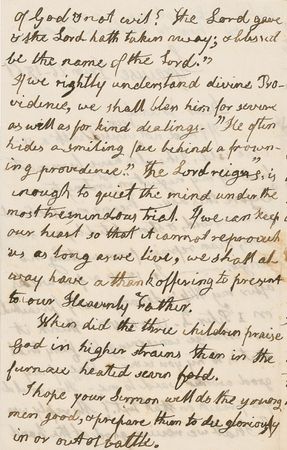 of God & not evil? The Lord gave
& the Lord hath taken away; & blessed
be the name of the Lord."
If we rightly understand divine Pro-
vidence, we shall bless him for severe
as well as for kind dealings. "He often
hides a smiling face behind a frown-
ing providence." "The Lord reigns", is
enough to quiet the mind under the
most tremendous trial. If we can keep
our heart so that it cannot reproach
us as long as we live, we shall al-
way have a thank offering to present
to our Heavenly Father.
When did the three children praise
God in higher strains than in the
furnace heated seven fold.
I hope your Sermon will do the young
men good, & prepare them to die gloriously
in or out of battle.